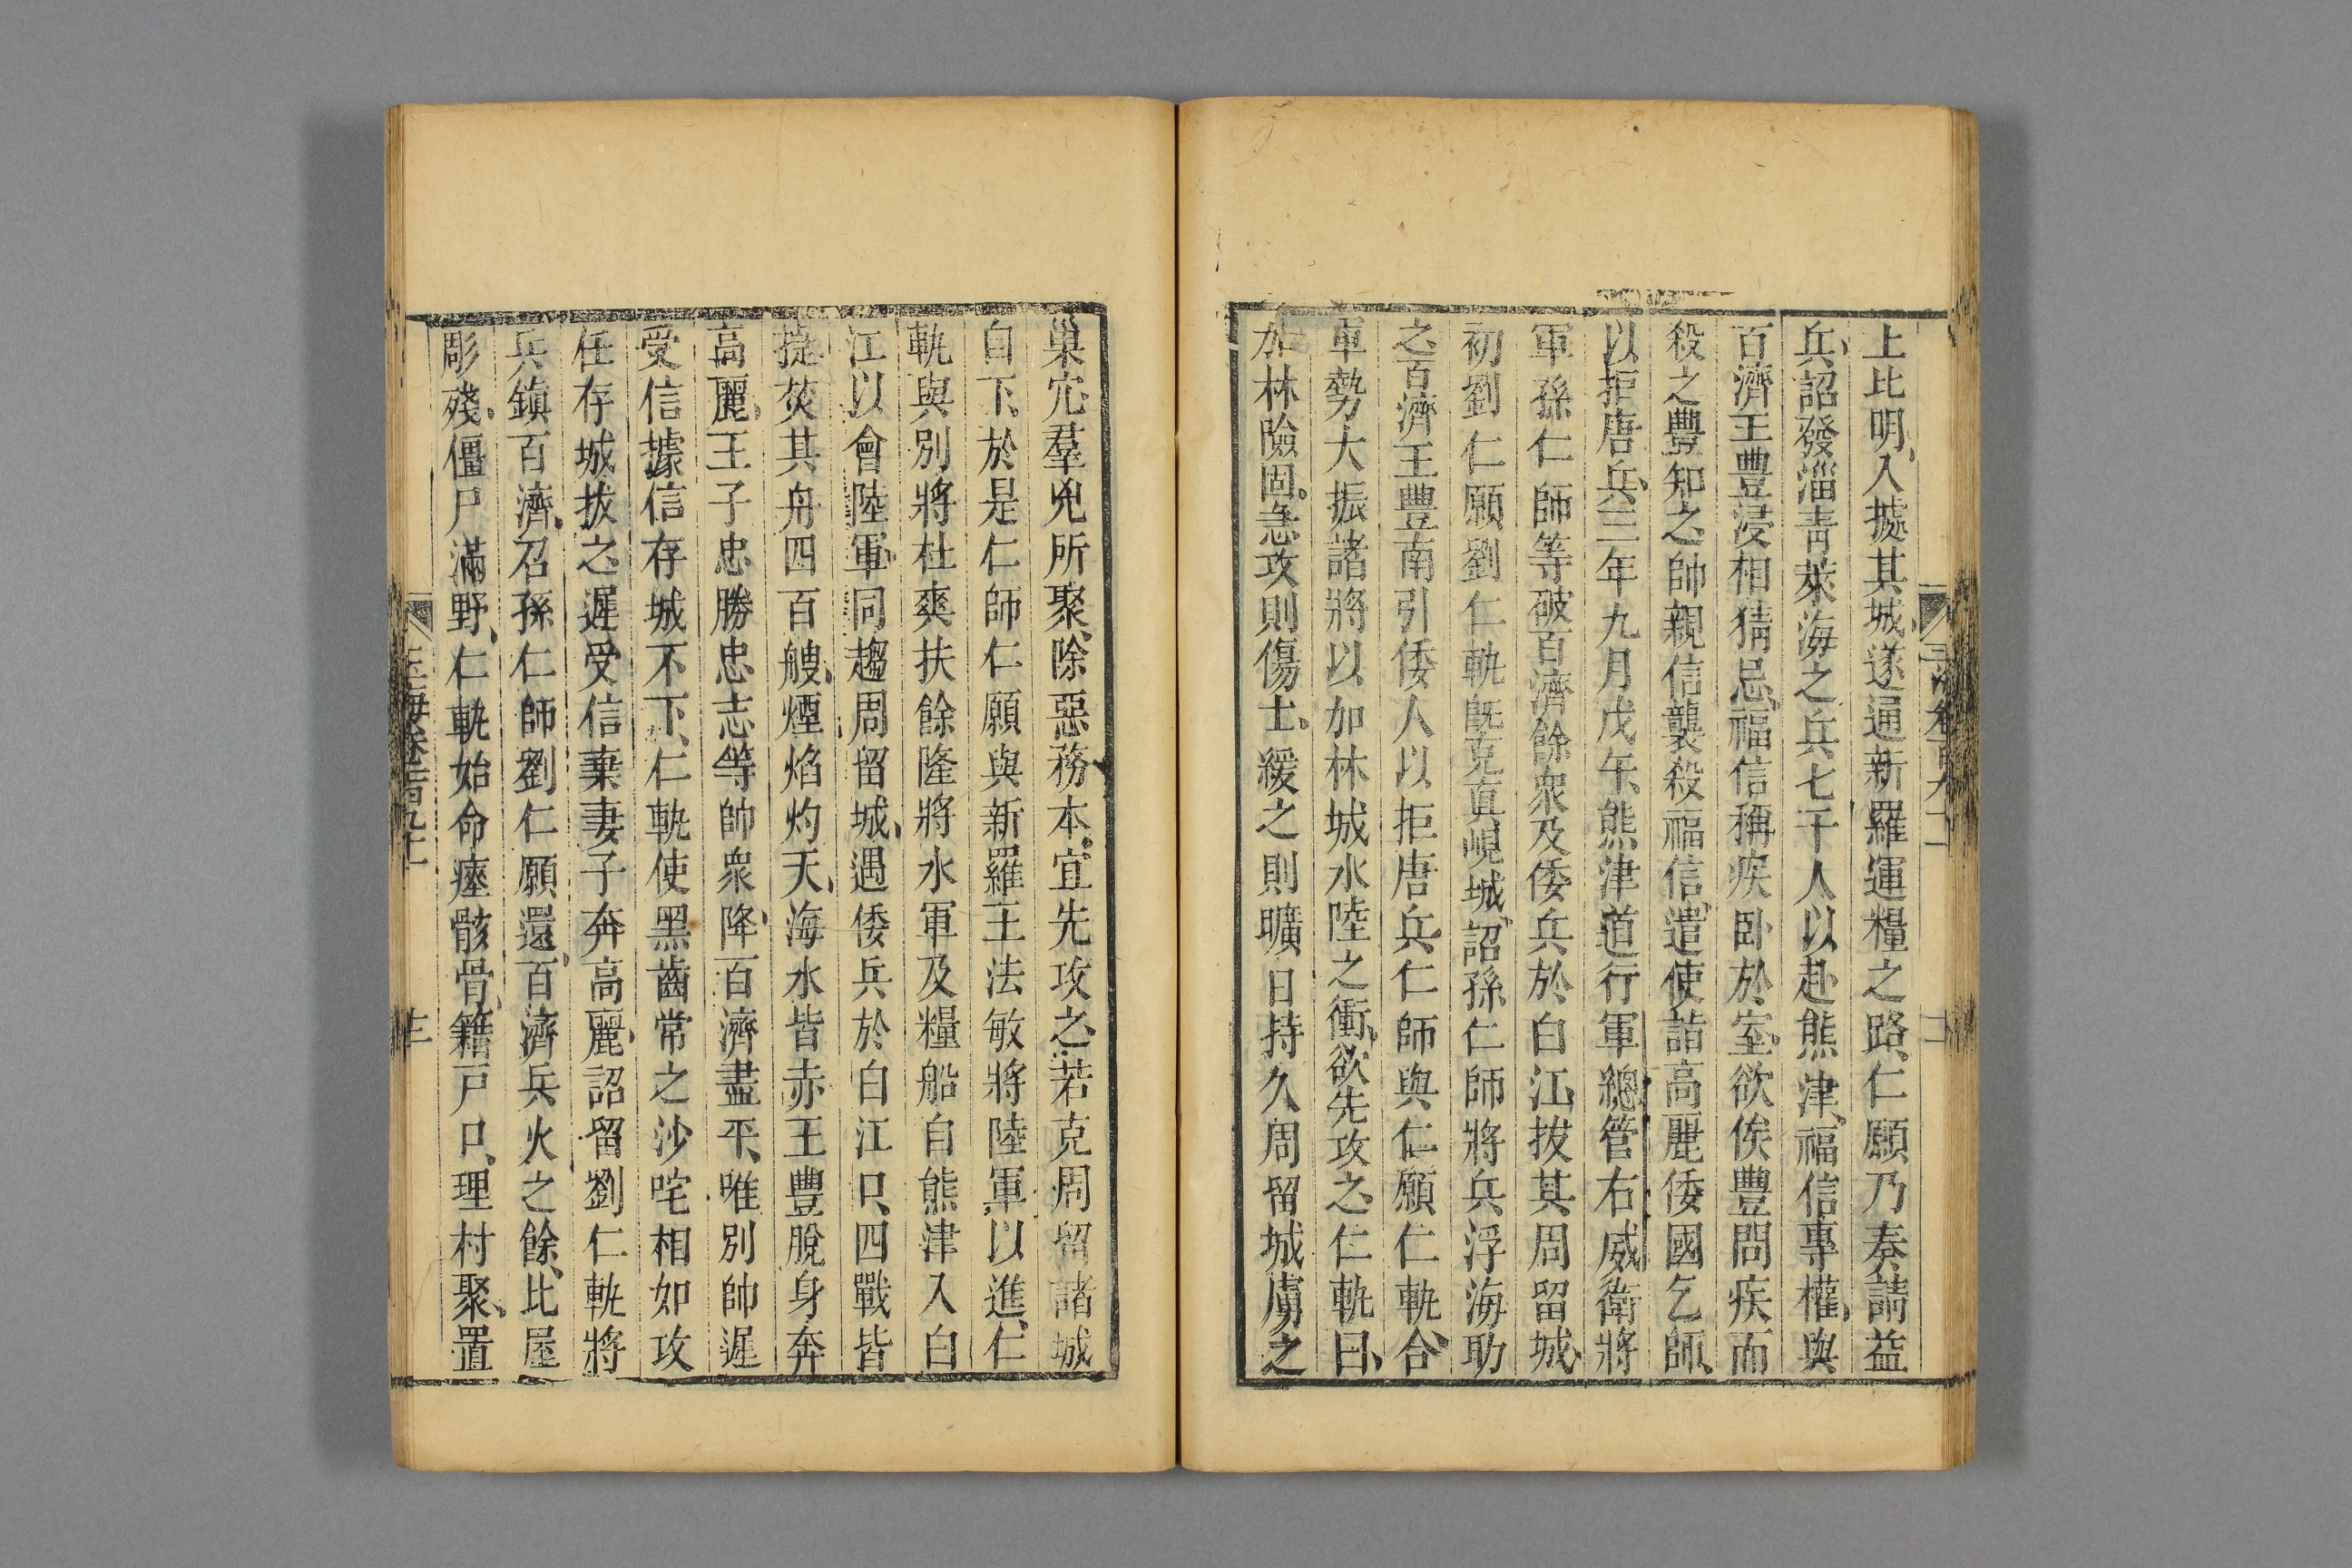 上比明、入據其城、遂通新羅運糧之路、仁願乃奏請益
兵、詔發淄青萊海之兵七千人以赴熊津、福信專權、與
百濟王豐浸相猜忌、福信稱疾臥於室、欲俟豐問疾而
殺之豐知之、帥親信襲殺福信、遣使詣高麗倭國乞師、
以拒唐兵、三年九月戊午、熊津道行軍總管右威衛將
軍孫仁師等破百濟餘衆及倭兵於白江、拔其周留城、
初劉仁願劉仁軌旣克真峴城、詔孫仁師將兵浮海助
之百濟王豐南引倭人以拒唐兵、仁師與仁願仁軌合、
軍勢大振諸將以加林城水陸之衝、欲先攻之、仁軌曰、
加林險固、急攻則傷士、緩之則曠日持久周留城虜之
巢穴羣兇所聚、除惡務本、宜先攻之、若克周留諸城
自下、於是仁師仁願與新羅王法敏將陸軍以進、仁
軌與別將杜爽扶餘隆將水軍及糧船自熊津入白
江以會陸軍、同趨周留城、遇倭兵於白江口、四戰皆
捷焚其舟四百艘、煙焰灼天、海水皆赤王豐脫身奔
高麗、王子忠勝忠志等帥衆降、百濟盡平、唯別帥遲
受信據信存城不下、仁軌使黑齒常之沙吒相如攻
任存城拔之、遲受信棄妻子奔高麗、詔留劉仁軌將
兵鎮百濟、召孫仁師劉仁願還、百濟兵火之餘、比屋
彫殘、僵尸滿野、仁軌始命瘞骸骨、籍戸口、理村聚、置